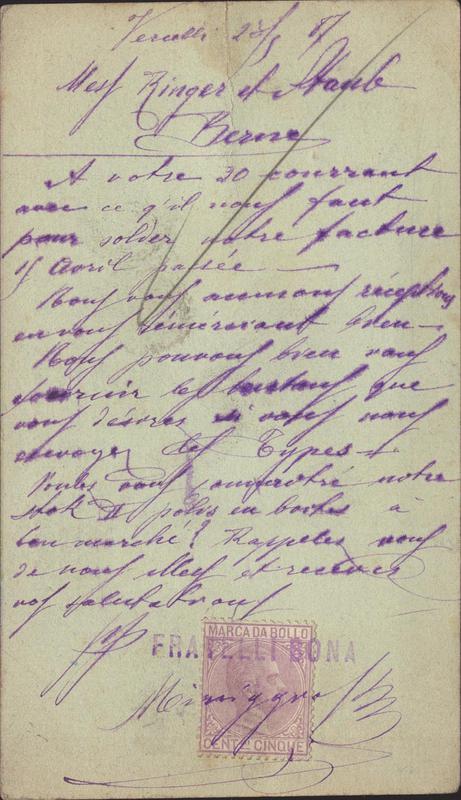 Vercelli 23/5 87
Mess Ringer et Staub
Berne
A votre 20 courrant
avec ce q'il nous faut
pour solder notre facture
15 Avril passée —
Nous vous accusons
en vous bien —
Nous pouvons bien vous
fournir le que
vous désires si vous nous
envoyez des Types —
Voules vous notre
stok polis en boites à
bon marché? Rappeles vous
de nous Mess et recevez
nos salutations
FRATELLI BONA
MARCA DA BOLLO
CENT. CINQUE